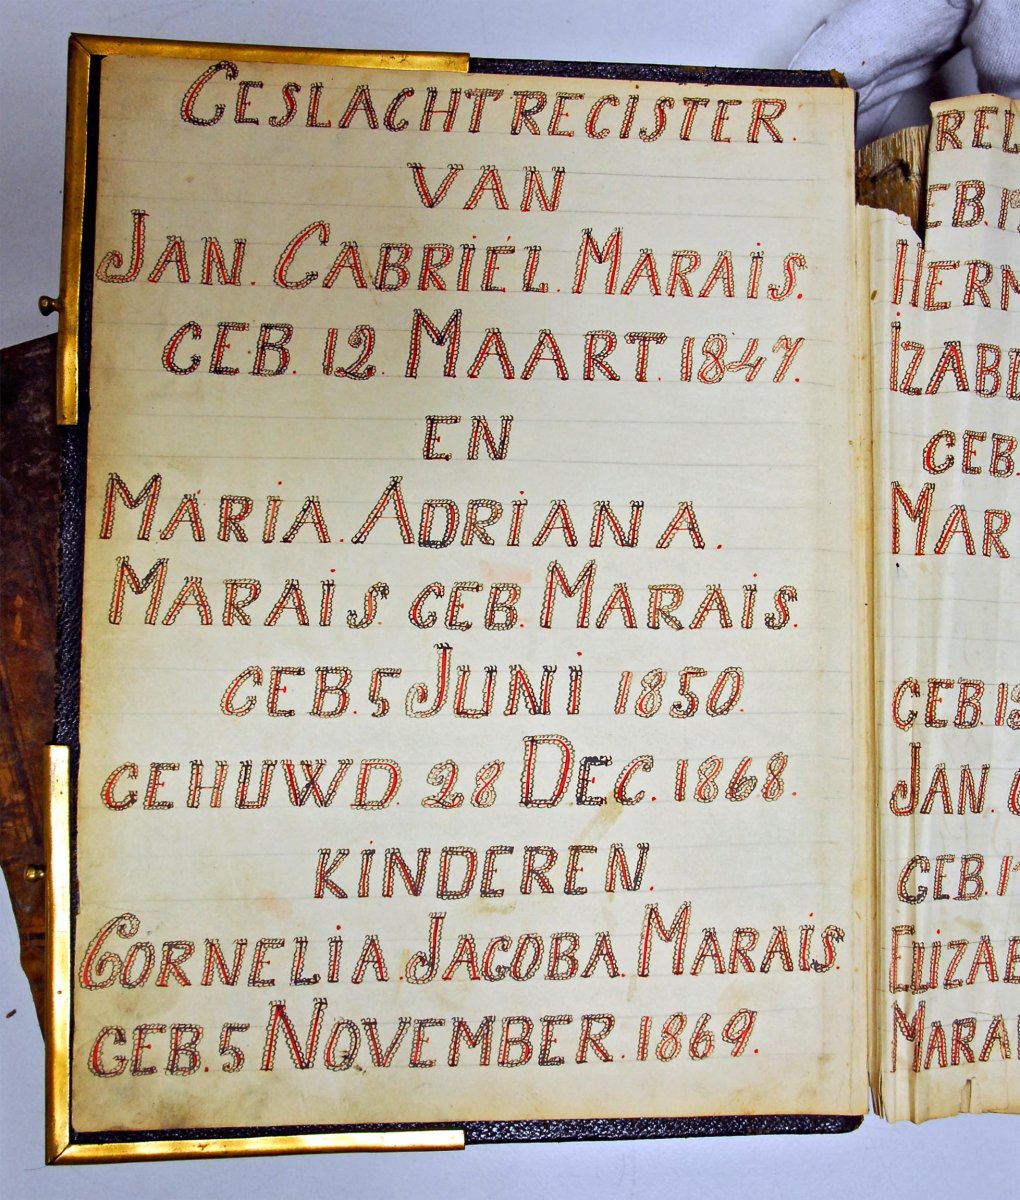 GESLACHT REGISTER.
VAN
JAN. GABRIËL. MARAIS.
GEB. 12. MAART. 1847.
EN
MARIA. ADRIANA.
MARAIS. GEB. MARAIS.
GEB. 5 JUNI 1850.
GEHUWD. 28 DEC. 1868.
KINDEREN.
CORNELIA. JACOBA. MARAIS.
GEB. 5 NOVEMBER. 1869.
GEB.
GEB.
JAN.
GEB.